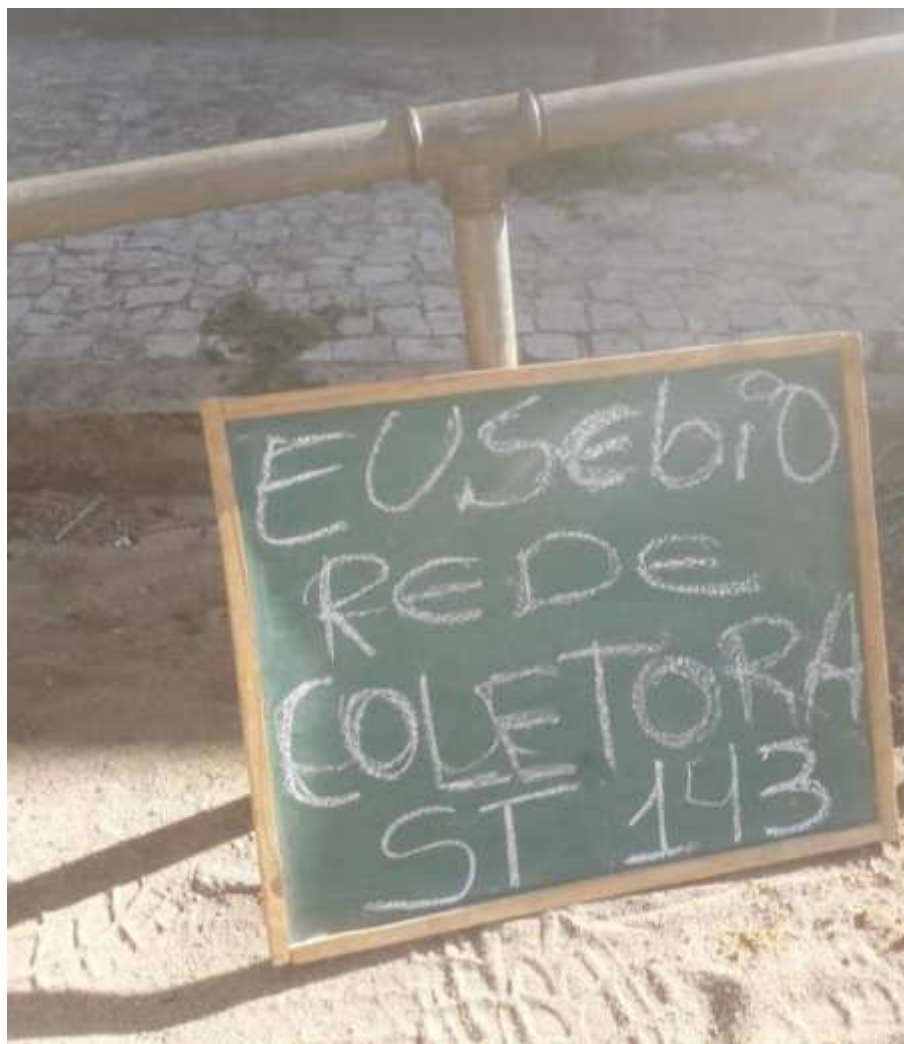 EUSEbiO
REDE
COLETORA
ST 143